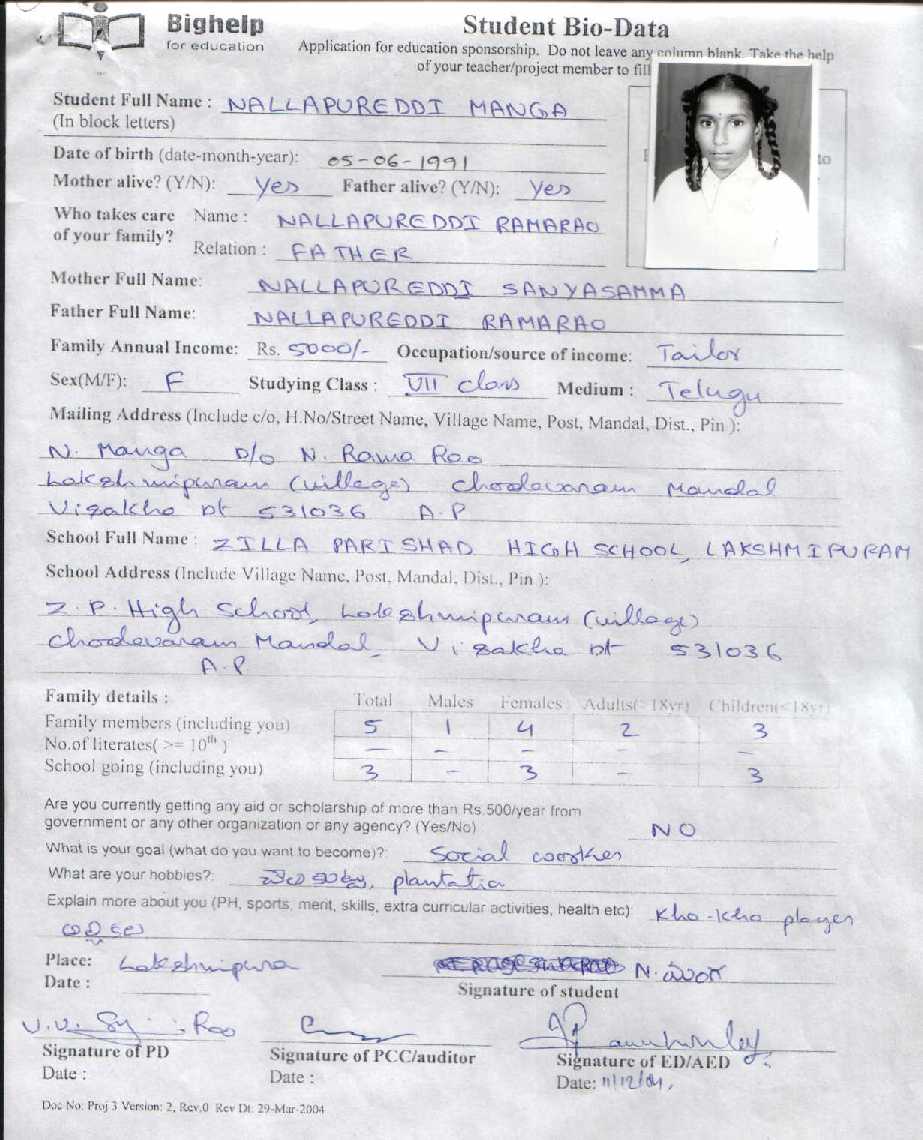 Bighelp
for education
Student Bio-Data
Application for education sponsorship. Do not leave any column blank. Take the help
of your teacher/project member to fill
Student Full Name : NALLAPUREDDI MANGA
(In block letters)
to
Date of birth (date-month-year): 05-06-1991
Mother alive? (Y/N): Yes Father alive? (Y/N): Yes
Who takes care Name : NALLAPUREDDI RAMARAO
of your family?
Relation : FATHER
Mother Full Name: NALLAPUREDDI SANYASAMMA
Father Full Name: NALLAPUREDDI RAMARAO
Family Annual Income: Rs. 5000/- Occupation/source of income: Tailor
Sex(M/F): F Studying Class : VII class Medium : Telugu
Mailing Address (Include c/o, H.No/Street Name, Village Name, Post, Mandal, Dist., Pin ):
N. Manga D/o N. Rama Rao
Lakshmipuram (village) Chodavaram Mandal
Visakha Dt 531036 A.P
School Full Name : ZILLA PARISHAD HIGH SCHOOL, LAKSHMIPURAM
School Address (Include Village Name, Post, Mandal, Dist., Pin ):
Z.P. High School, Lakshmipuram (village)
Chodavaram Mandal, Visakha Dt 531036
A.P
Family details : Total Males Females Adults(>18yr) Children(<18yr)
Family members (including you) 5 1 4 2 3
No.of literates( >= 10th ) — – – – –
School going (including you) 3 – 3 – 3
Are you currently getting any aid or scholarship of more than Rs.500/year from
government or any other organization or any agency? (Yes/No) NO
What is your goal (what do you want to become)?: Social worker
What are your hobbies?: plantation
Explain more about you (PH, sports, merit, skills, extra curricular activities, health etc): Kho-Kho player
Place: Lakshmipura
Date :
N. మంగ
Signature of student
V.V. Rao
Signature of PD
Signature of PCC/auditor
Signature of ED/AED
Date :
Date :
Date: 11/12/04,
Doc No: Proj 3 Version: 2, Rev.0 Rev Dt: 29-Mar-2004